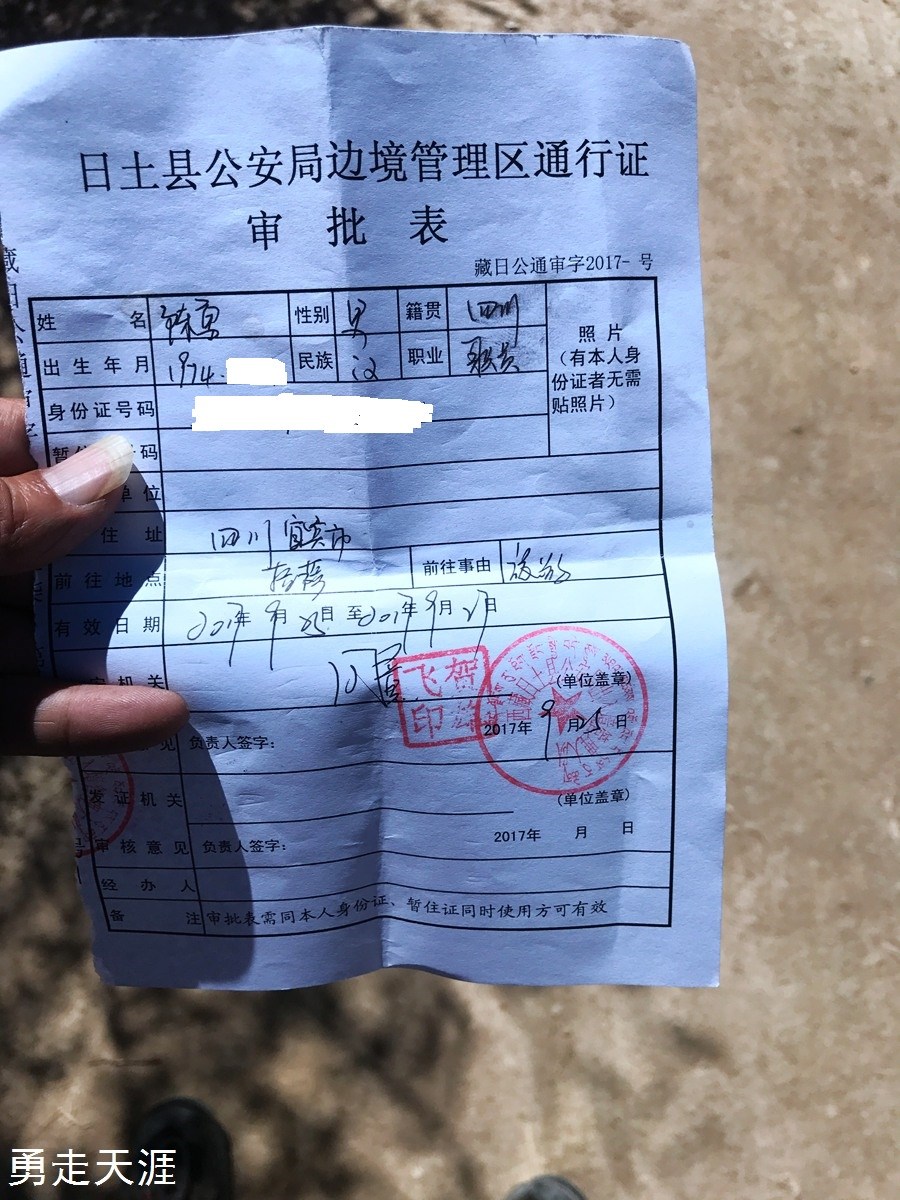 日土县公安局边境管理区通行证
审批表
藏日公通审字2017- 号
姓名 性别 男 籍贯 四川
照片
出生年月 1974. 民族 汉 职业 职员
(有本人身
份证者无需
贴照片)
身份证号码
暂住 号码
单位
住址 四川宜宾市
前往地点 前往事由
有效日期 2017年9月25日至2017年9月27日
机关 同意
贺飞印
(单位盖章)
2017年9月25日
见 负责人签字:
发证机关
(单位盖章)
2017年 月 日
审核意见 负责人签字:
经办人
备注 审批表需同本人身份证、暂住证同时使用方可有效
勇走天涯